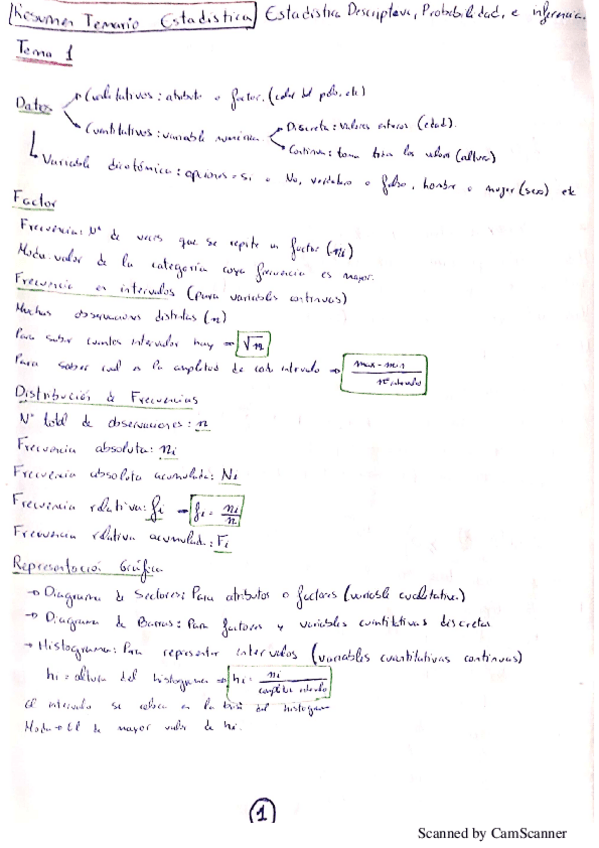 Resumen Temario Estadística Estadística Descriptiva, Probabilidad, e inferencia.
Tema 1
Datos
Cualitativos: atributo o factor. (color del pelo, etc)
Cuantitativos: variable numérica
Discreta: valores enteros (edad).
Continua: toma todos los valores (altura)
Variable dicotómica: opciones = si o No, verdadero o falso, hombre o mujer (sexo) etc
Factor
Frecuencia: Nº de veces que se repite un factor (ni)
Moda: valor de la categoría cuya frecuencia es mayor.
Frecuencia en intervalos (para variables continuas)
Muchas observaciones distintas (n)
Para saber cuantos intervalos hay → √n
Para saber cual es la amplitud de cada intervalo → max - min / nº intervalo
Distribución de Frecuencias
Nº total de observaciones: n
Frecuencia absoluta: ni
Frecuencia absoluta acumulada: Ni
Frecuencia relativa: fi → fi = ni / n
Frecuencia relativa acumulad: Fi
Representació Gráfica
→ Diagrama de Sectores: Para atributos o factores (variable cualitativa)
→ Diagrama de Barras: Para factores y variables cuantitativas discretas
→ Histograma: Para representar intervalos (variables cuantitativas continuas)
hi = altura del histograma → hi = ni / amplitud intervalo
El intervalo se coloca en la base del histogram
Moda → El de mayor valor de hi.
1
Scanned by CamScanner